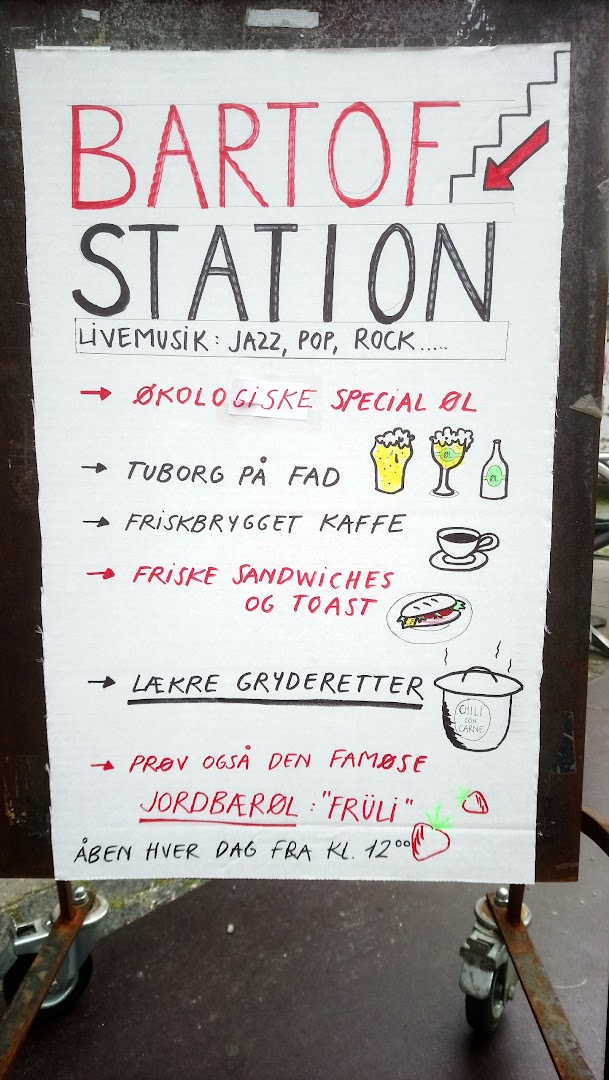 BARTOF
STATION
LIVEMUSIK: JAZZ, POP, ROCK.....
→ ØKOLOGISKE SPECIAL ØL
→ TUBORG PÅ FAD
ØL
ØL
→ FRISKBRYGGET KAFFE
→ FRISKE SANDWICHES
OG TOAST
→ LÆKRE GRYDERETTER
CHILI
CON
CARNE
→ PRØV OGSÅ DEN FAMØSE
JORDBÆRØL: "FRÜLI"
ÅBEN HVER DAG FRA KL. 12⁰⁰